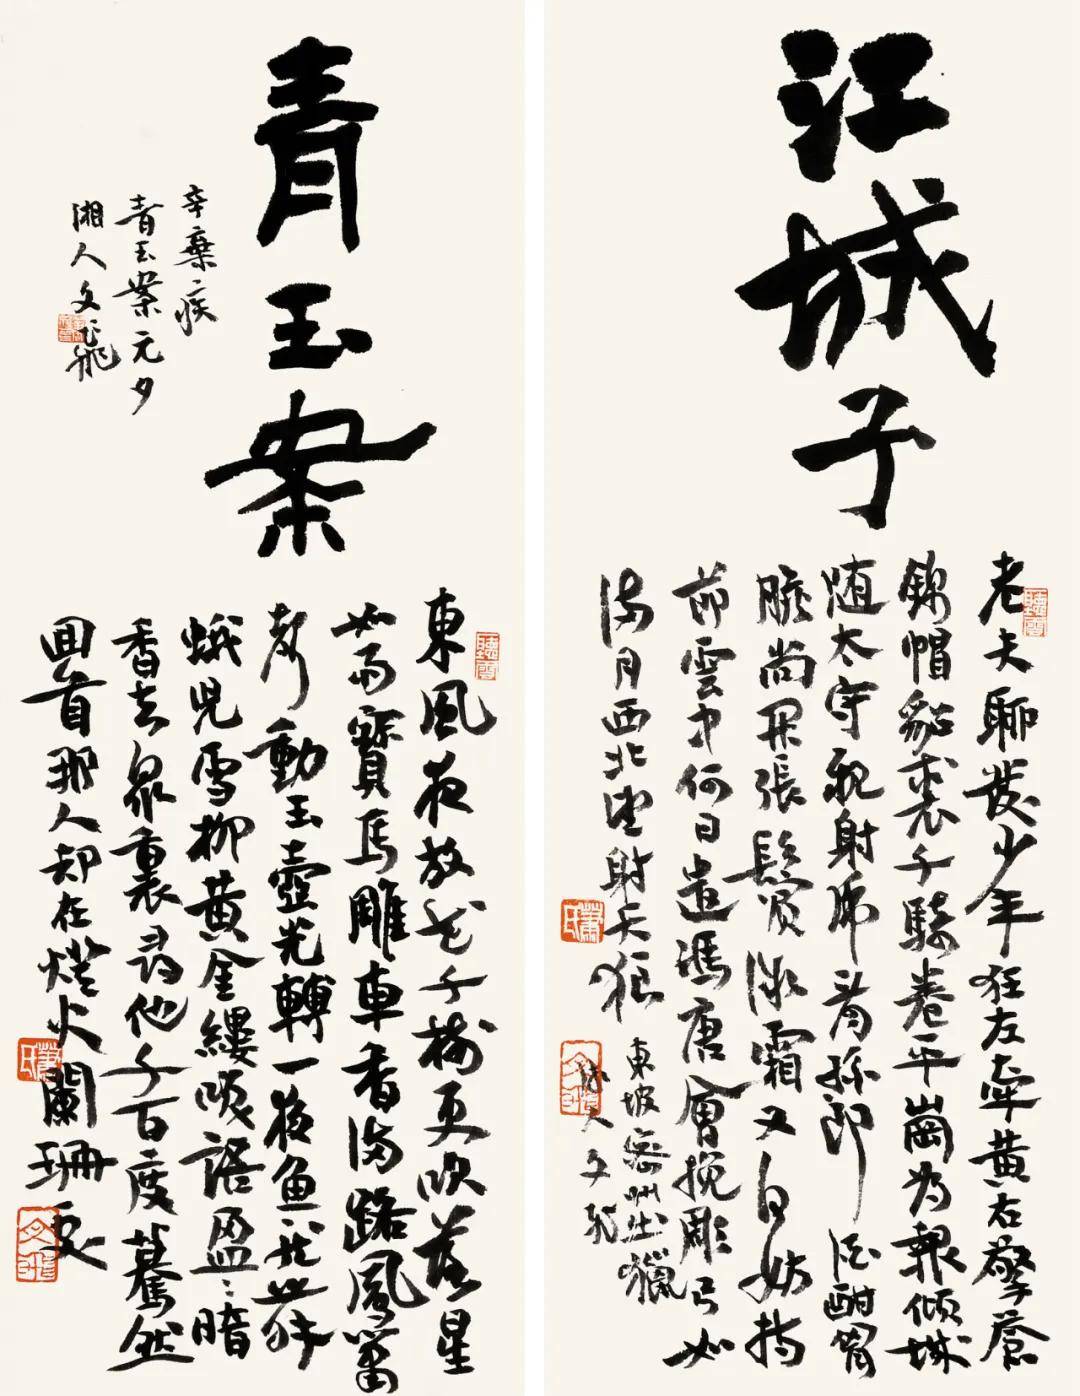 江城子
老夫聊發少年狂左牽黃右擎蒼
錦帽貂裘千騎卷平崗為報傾城
随太守親射虎看孫郎 酒酣胷
膽尚開張鬢微霜又何妨持
節雲中何日遣馮唐會挽彫弓如
滿月西北望射天狼
東坡密州出獵
湘人文飛
蕭氏
青玉案
東風夜放花千樹更吹落星
如雨寶馬雕車香滿路鳳簫
聲動玉壺光轉一夜魚龍舞
蛾兒雪柳黃金縷笑語盈〻暗
香去眾裏尋他千百度驀然
回首那人却在燈火闌珊處
辛棄疾
青玉案元夕
湘人文飛
蕭氏